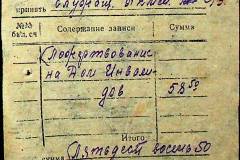 принять
№№ бал. сч
Содержание записи
Сумма
Пожертвование
на Дом Инвали-
дов
58 50
Итого
сумма Пятьдесят восемь 50